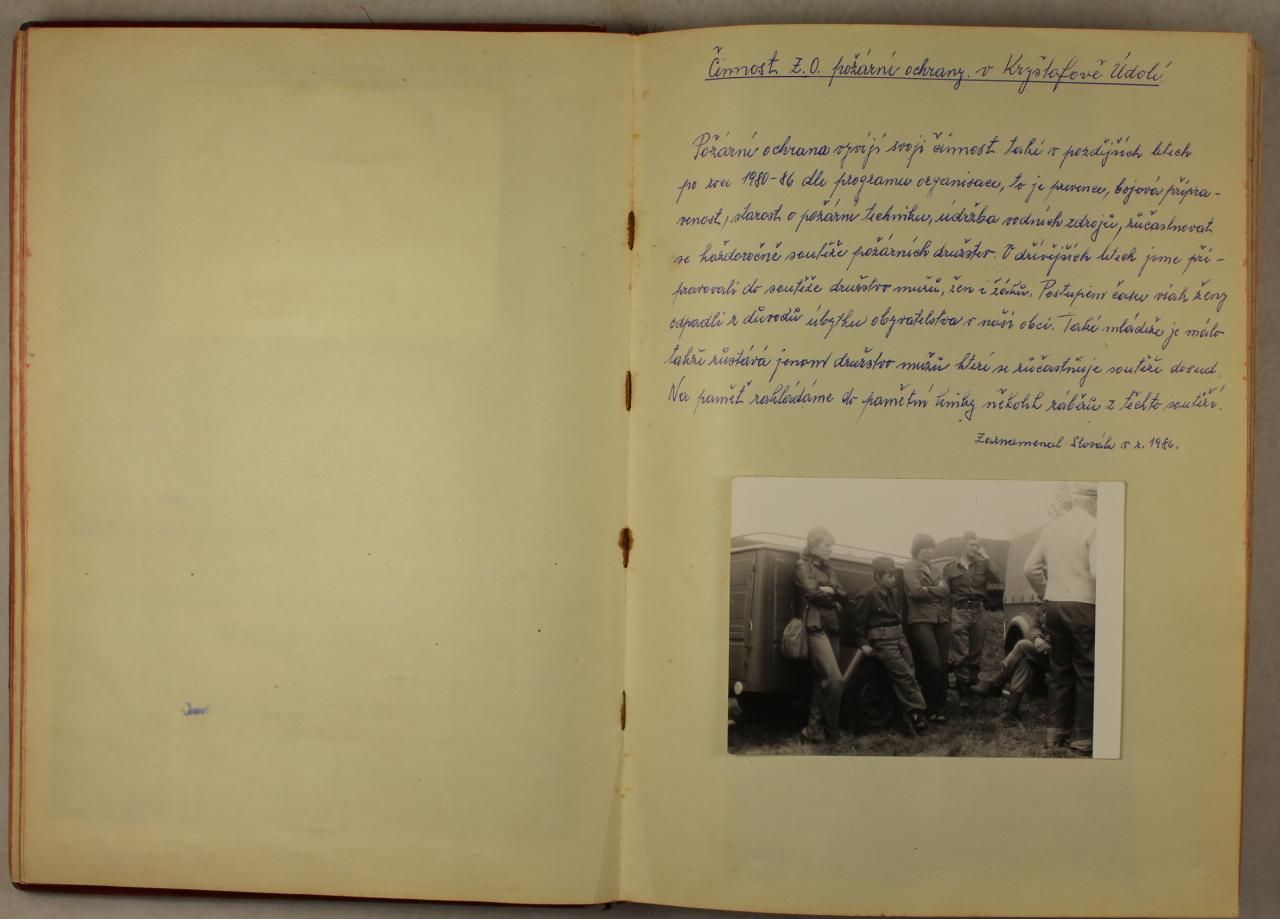 Činnost Z.O. požární ochrany. v Kryštofově Údolí
Požární ochrana vyvíjí svoji činnost také v pozdějších letech
po roce 1980-86 dle programu organisace, to je prevence, bojová připra-
venost, starost o požární techniku, údržba vodních zdrojů, zůčastnovat
se každoročně soutěže požárních družstev. V dřívějších letech jsme při-
pravovali do soutěže družstvo mužů, žen i žáků. Postupem času však ženy
odpadli z důvodů úbytku obyvatelstva v naší obci. Také mládeže je málo
takže zůstává jenom družstvo mužů které se zůčastňuje soutěží dosud.
Na paměť zakládáme do pamětní knihy několik záběrů z těchto soutěží.
Zaznamenal Slovák v r. 1986.